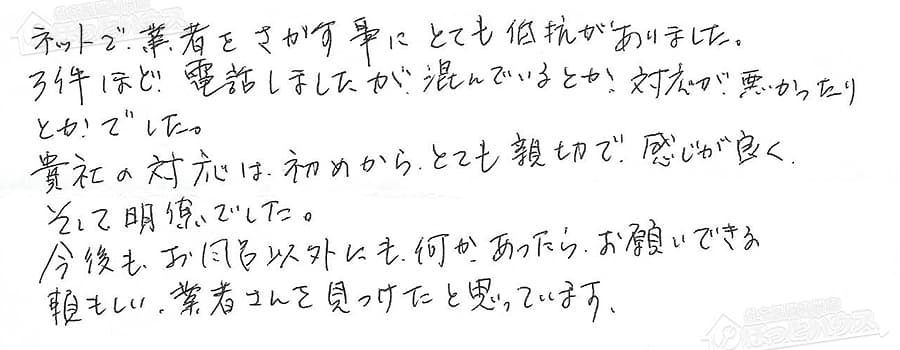 ネットで、業者をさがす事にとても低抗がありました。
3件ほど、電話しましたが、混んでいるとか、対応が、悪かったり
とか、でした。
貴社の対応は、初めから、とても親切で、感じが良く、
そして明僚でした。
今後も、お風呂以外にも、何か、あったら、お願いできる
頼もしい、業者さんを見つけたと思っています。